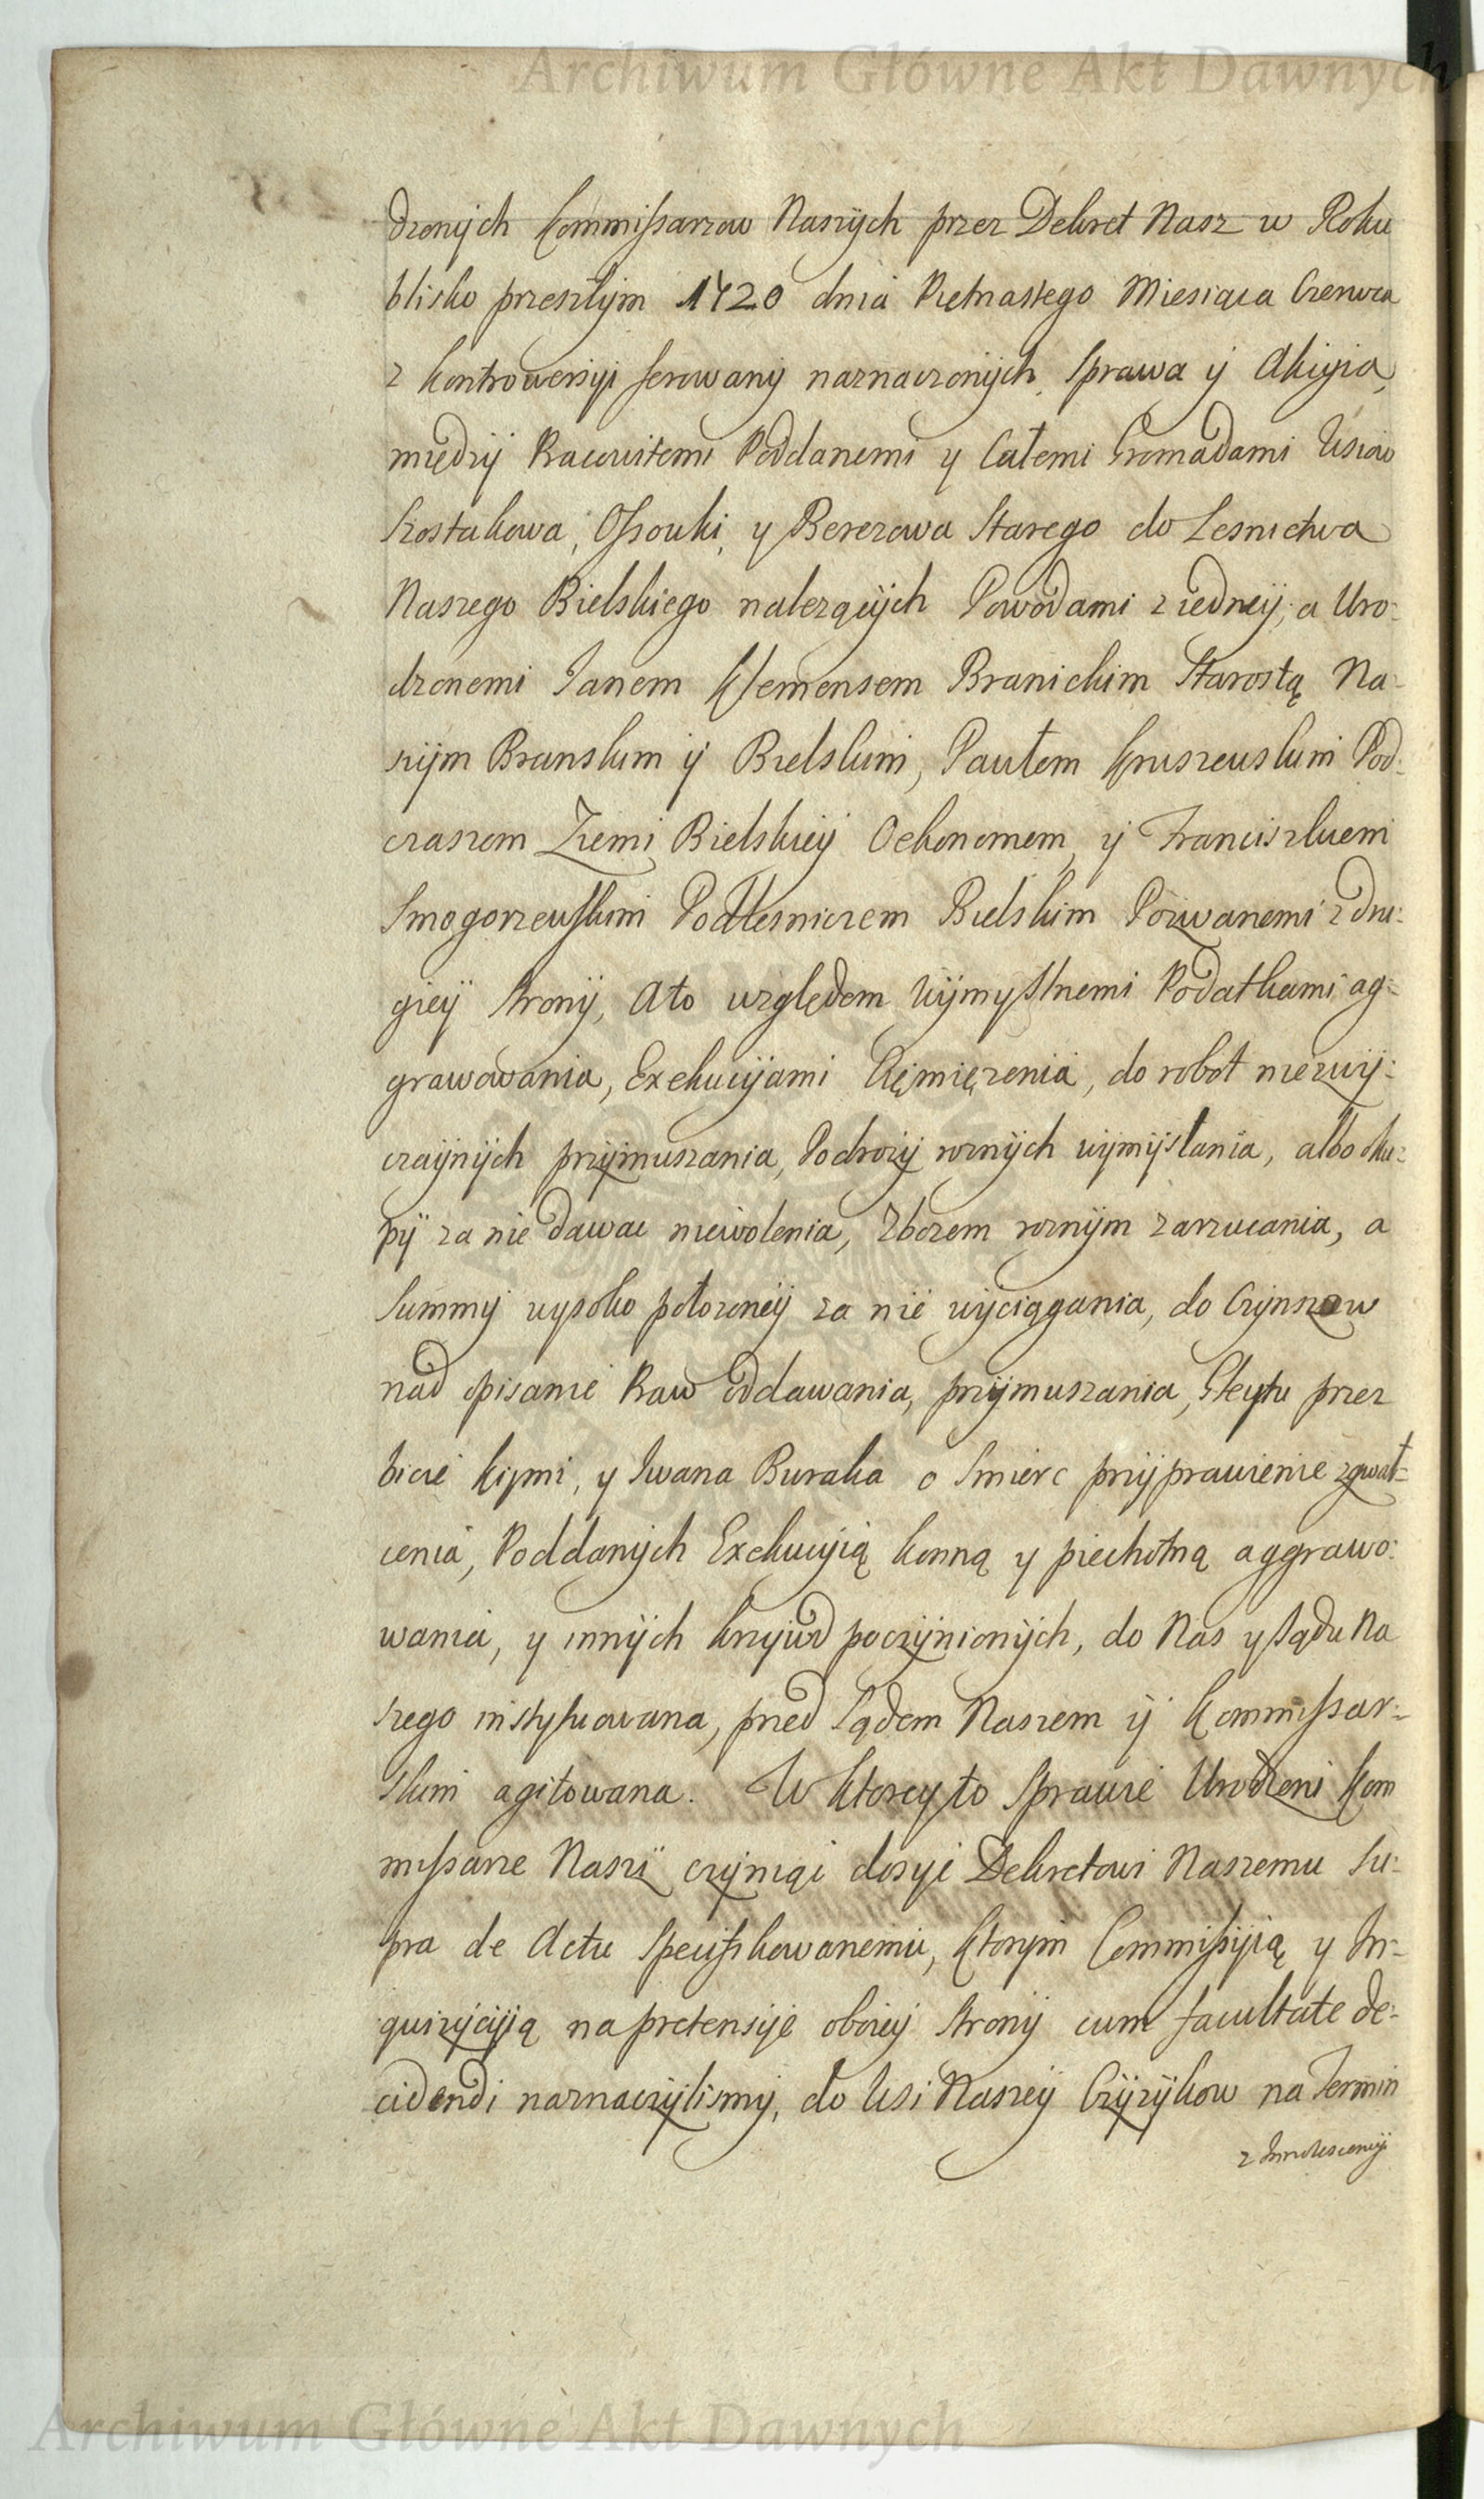 Archiwum Główne Akt Dawnych
dzonych Kommissarzow Naszych przez Dekret Nasz w Roku
blisko przeszłym 1720 dnia Pietnastego Miesiąca Czerwca
z kontrowersyi ferowany naznaczonych, sprawa y Akcyia,
między Pracowitemi Poddanemi y Całemi Gromadami Wsiow
Kostukowa, Ossouki, y Berezowa Starego do Lesnictwa
Naszego Bielskiego nalezących Powodami z iedney, a Uro-
dzonemi Janem Klemensem Branickim Starostą Na-
szym Branskim y Bielskim, Pawłem Kruszewskim Pod-
czaszem Ziemi Bielskiey Oekonomem, y Franciszkiem
Smogorzewskim Podlesniczem Bielskim Pozwanemi z dru-
giey strony, Ato względem wymyslnemi Podatkami ag-
grawowania, Exekucyjami Cięmięzenia, do robot niezwy-
czaynych przymuszania, Podrozy roznych wymyslania, albo oku-
py za nie dawac niewolenia, Zbozem roznym zarzucania, a
Summy wysoko połozoney za nie wyciągania, do Czynszow
nad opisanie Praw oddawania, przymuszania, Gleytu przez
bicie kiymi, y Iwana Buraka o smierc przyprawienie zgwał-
cenia, Poddanych Exekucyią konną y piechotną aggrawo-
wania, y innych krzywd poczynionych, do Nas y sądu Na
szego instytuowana, przed Sądem Naszem y Kommissar-
skim agitowana. W ktorey to sprawie Urodzeni Kom
missarze Naszy czyniąc dosyc Dekretowi Naszemu Su-
pra de Actu specyfikowanemu, ktorym Commissyią y In-
quizycyią na pretensye oboiey strony cum facultate de-
cidendi naznaczylismy, do Wsi Naszey Czyzykow na Termin
z Innotescencyi
Archiwum Główne Akt Dawnych